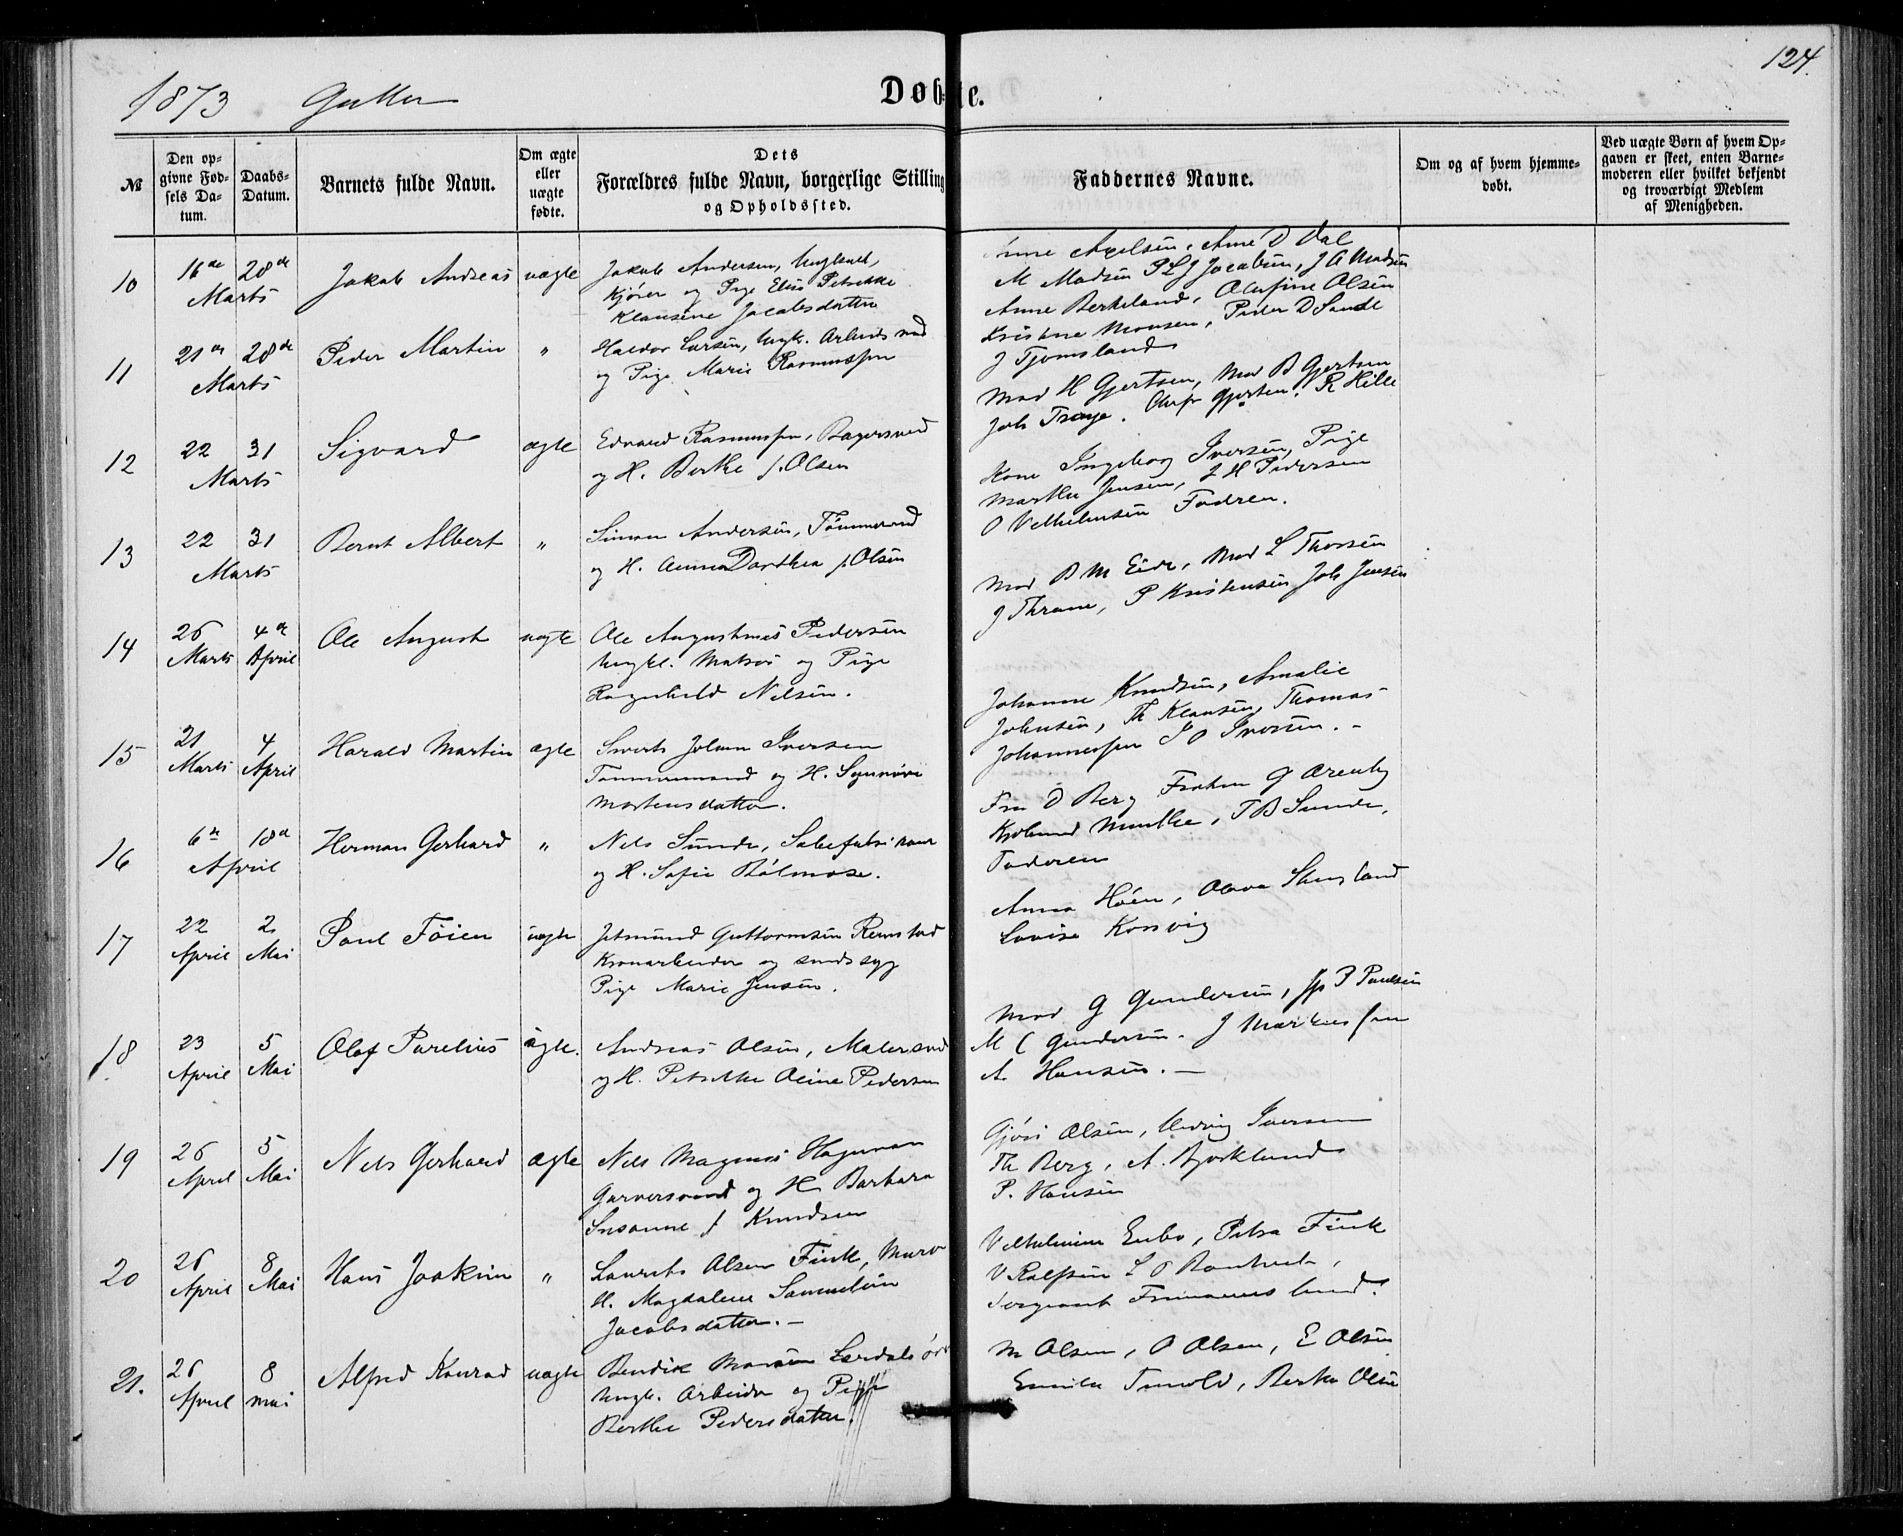 124.
1873 Gutter
Døbte.
№
Den op-
givne Fød-
sels Da-
tum.
Daabs-
Datum.
Barnets fulde Navn.
Om ægte
eller
uægte
fødte.
Dets
Forældres fulde Navn, borgerlige Stilling
og Opholdssted.
Faddernes Navne.
Om og af hvem hjemme-
døbt.
Ved uægte Børn af hvem Op-
gaven er skeet, enten Barne-
moderen eller hvilket bekjendt
og troværdigt Medlem
af Menigheden.
10
16de 28de
Marts
Jakob Andreas
uægte
Jakob Andersen, Ungkarl,
Kjører og Pige Elise Petrikke
Klausine Jacobsdatter
Anne Axelsen, Ane D Dal
M Madsen P L J Jacobsen, J A Madsen
11
21de 28de
Marts
Peder Martin
"
Haldor Larsen, Ungk. Arbeidsmd
og Pige Marie Rasmussen
Anne Berkeland, Olufine Olsen
Kristine Monsen, Peder D Sande
J Tjomsland
12
22 31
Marts
Sigvard
ægte
Edvard Rasmussen, Bagersvend
og H. Berthe f. Olsen
Mad H Gjertsen, Mad B Gjertsen
Joh Traye. Gjertsen, R Hille
13
22 31
Marts
Bernt Albert
"
Simon Andersen, Tømmermd
og H. Anna Dorthea f. Olsen
Kone Ingeborg Iversen, Pige
Marthe Jensen, L H Pedersen
O Velhelmsen Fadren.
14
26 4de
Marts April
Ole August
uægte
Ole Augustinus Pedersen
Ungkl. Matros og Pige
Ragnhild Nilsen.
Mad B M Eide, Mad L Thorsen
J Thrane, P Kristensen Joh Jensen
15
21 4
Marts April
Harald Martin
ægte
Sivert Johan Iversen
Tømmermand og H. Synnøve
Mortensdatter.
Johanne Knudsen, Amalie
Johnsen, Th Klausen, Thomas
Johannessen I O Iversen. -
16
6te 18de
April
Herman Gerhard
"
Nels Sunde, Sæbefabrikant
og H. Sofie Rolmose.
Fru D Berg Frøken G
Munthe, T B Sunde,
Faderen
17
22 2
April Mai
Poul Føien
uægte
Jetmund Guttormsen Remstad
Kronarbeider og sindssyg
Pige Marie Jensen.
Anna Høen, Olava
Lovise Korsvig
18
23 5
April Mai
Olaf Parelius
ægte.
Andreas Olsen, Malersvd
og H. Petrikke Oline Pedersen
Mad G Gundersen, Jfr P Paulsen
M C Gundersen. J Markussen
A Hansen. -
19
26 5
April Mai
Nels Gerhard
ægte
Nels Magnus Hagman
Garversvend og H Barbara
Susanne f Knudsen
Gjøri Olsen, Hedvig Iversen
Th Berg, A. Bjorklund
P. Hansen
20
26 8
April Mai
Hans Joakim
"
Laurits Olsen Fink, Murer
H. Magdalene Samueline
Jacobsdatter. -
Velhelmine Enbo, Petra Fink
V Rolfsen L O
Sergeant
21.
26 8
April Mai
Alfred Konrad
uægte
Bendik Monsen Lærdalsøre
Ungk. Arbeider og Pige
Berthe Pedersdatter.
M Olsen, O Olsen, E Olsen
Emilie Tenold, Berthe Olsen